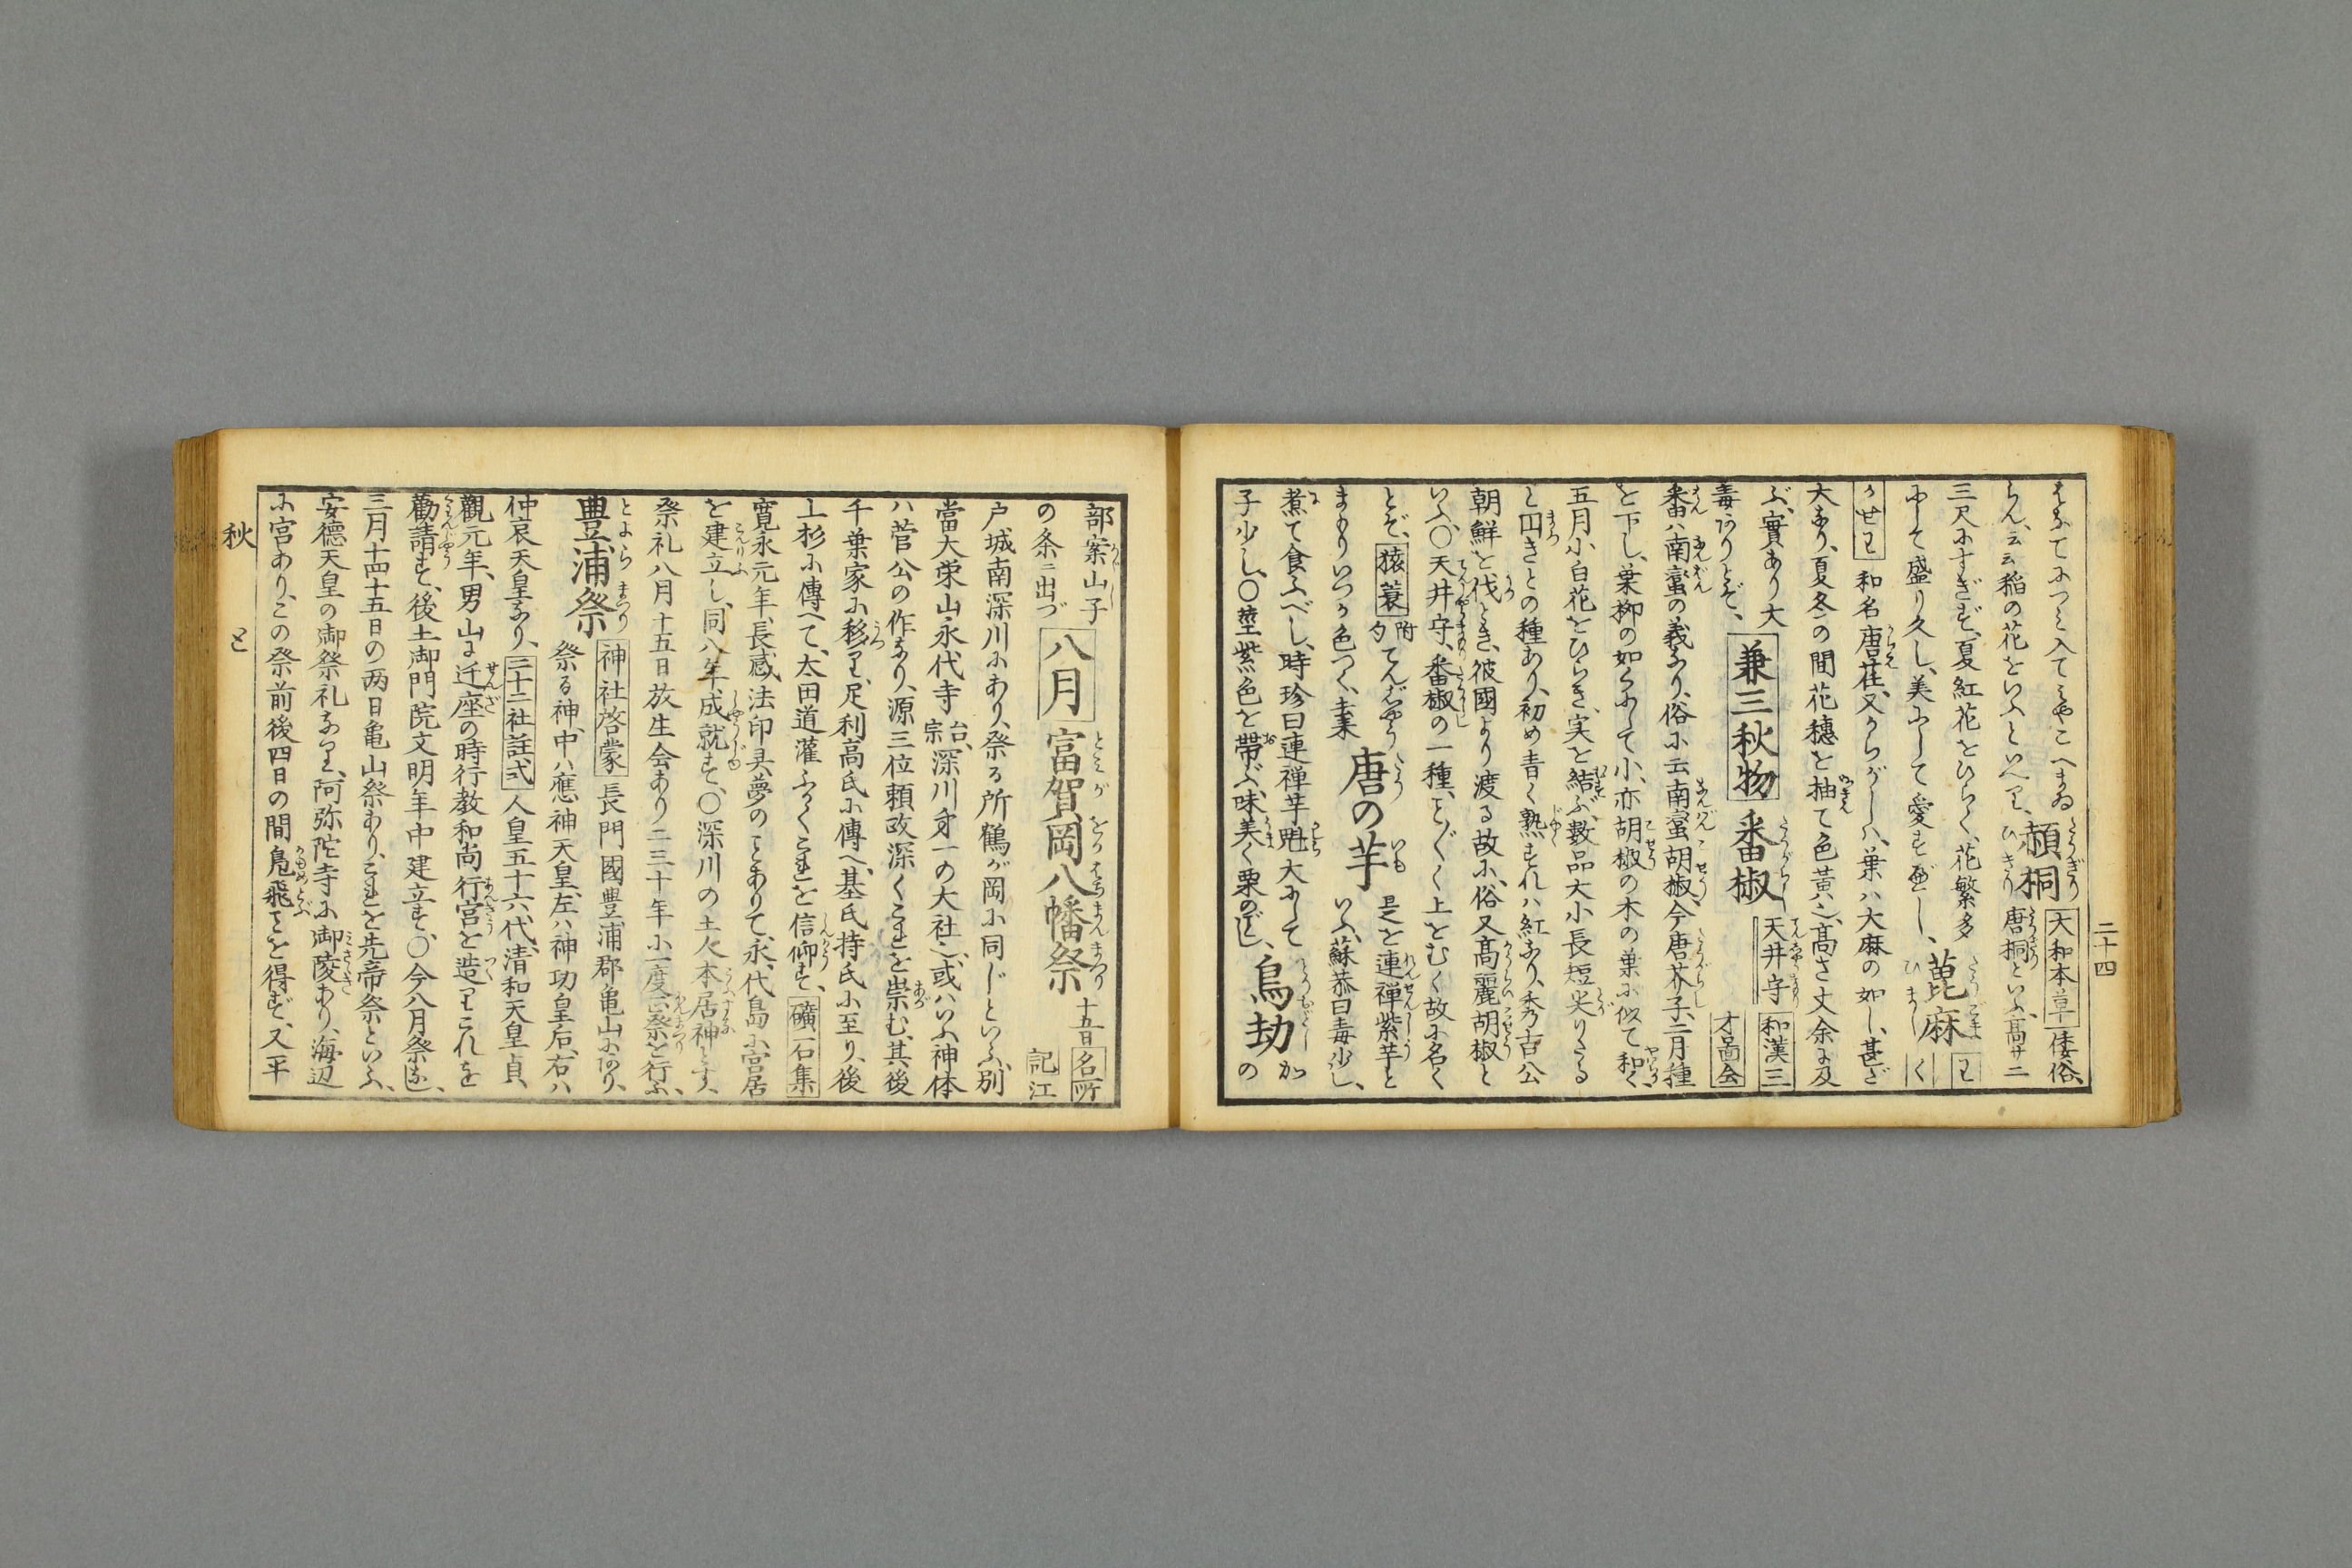 二十四
らん、云云稲の花をいふといへり、
頳桐
大和本草
倭俗、
唐桐といふ、高サ二
三尺にすぎず、夏紅花をひらく、花繁多
にして盛り久し、美にして愛すべし、
蓖麻
和名唐荏、又からがしハ、葉ハ大麻の如し、甚ダ
大なり、夏冬の間花穂を抽て色黄也、高さ丈余に及
ぶ、實あり大
毒ありとぞ、
兼三秋物
番椒
天井守
和漢三
才圖会
番ハ南蛮の義なり、俗に云南蛮胡椒、今唐芥子、二月種
を下し、葉柳の如くにして小、亦胡椒の木の葉に似て和く、
五月小白花をひらき、実を結ぶ、数品大小長短尖りたる
と円きとの種あり、初め青く熟すれハ紅なり、秀吉公
朝鮮を伐とき、彼國より渡る故に、俗又高麗胡椒と
いふ、〇天井守、番椒の一種、ことごとく上をむく故に名く
とぞ、
猿蓑
附句
てんじやう
まもりいつか色つく
唐の芋
是を連禅紫芋と
いふ、蘇恭曰毒少し、
煮て食ふべし、時珍曰連禅芋魁大にして
子少し、〇茎紫色を帯ぶ、味美く栗のごとし、
鳥劫
の
部案山子
の条ニ出づ
八月
富賀岡八幡祭
十五日
名所
記
江
戸城南深川にあり、祭る所鶴が岡に同じといふ、別
當大栄山永代寺
台宗
深川第一の大社也、或ハいふ神体
ハ菅公の作なり、源三位頼政深くこれを崇む、其後
千葉家に移り、足利高氏に傳へ、基氏持氏に至り、後
上杉に傳へて、太田道灌ふかくこれを信仰す、
礦石集
寛永元年、長盛法印具夢のことありて、永代島に宮居
を建立し、同八年成就す、〇深川の土人本居神とす、
祭礼八月十五日放生会あり二三十年に一度正祭を行ふ、
豊浦祭
神社啓蒙
長門國豊浦郡亀山にあり、
祭る神、中ハ應神天皇、左ハ神功皇后、右ハ
仲哀天皇なり、
二十二社註式
人皇五十六代、清和天皇貞
觀元年、男山に迁座の時行教和尚行宮を造りこれを
勧請す、後土御門院文明年中建立す、〇今八月祭なし、
三月十四十五日の両日亀山祭あり、これを先帝祭といふ、
安徳天皇の御祭礼なり、阿弥陀寺に御陵あり、海辺
に宮あり、この祭前後四日の間鳧飛ことを得ず、又平
秋
と